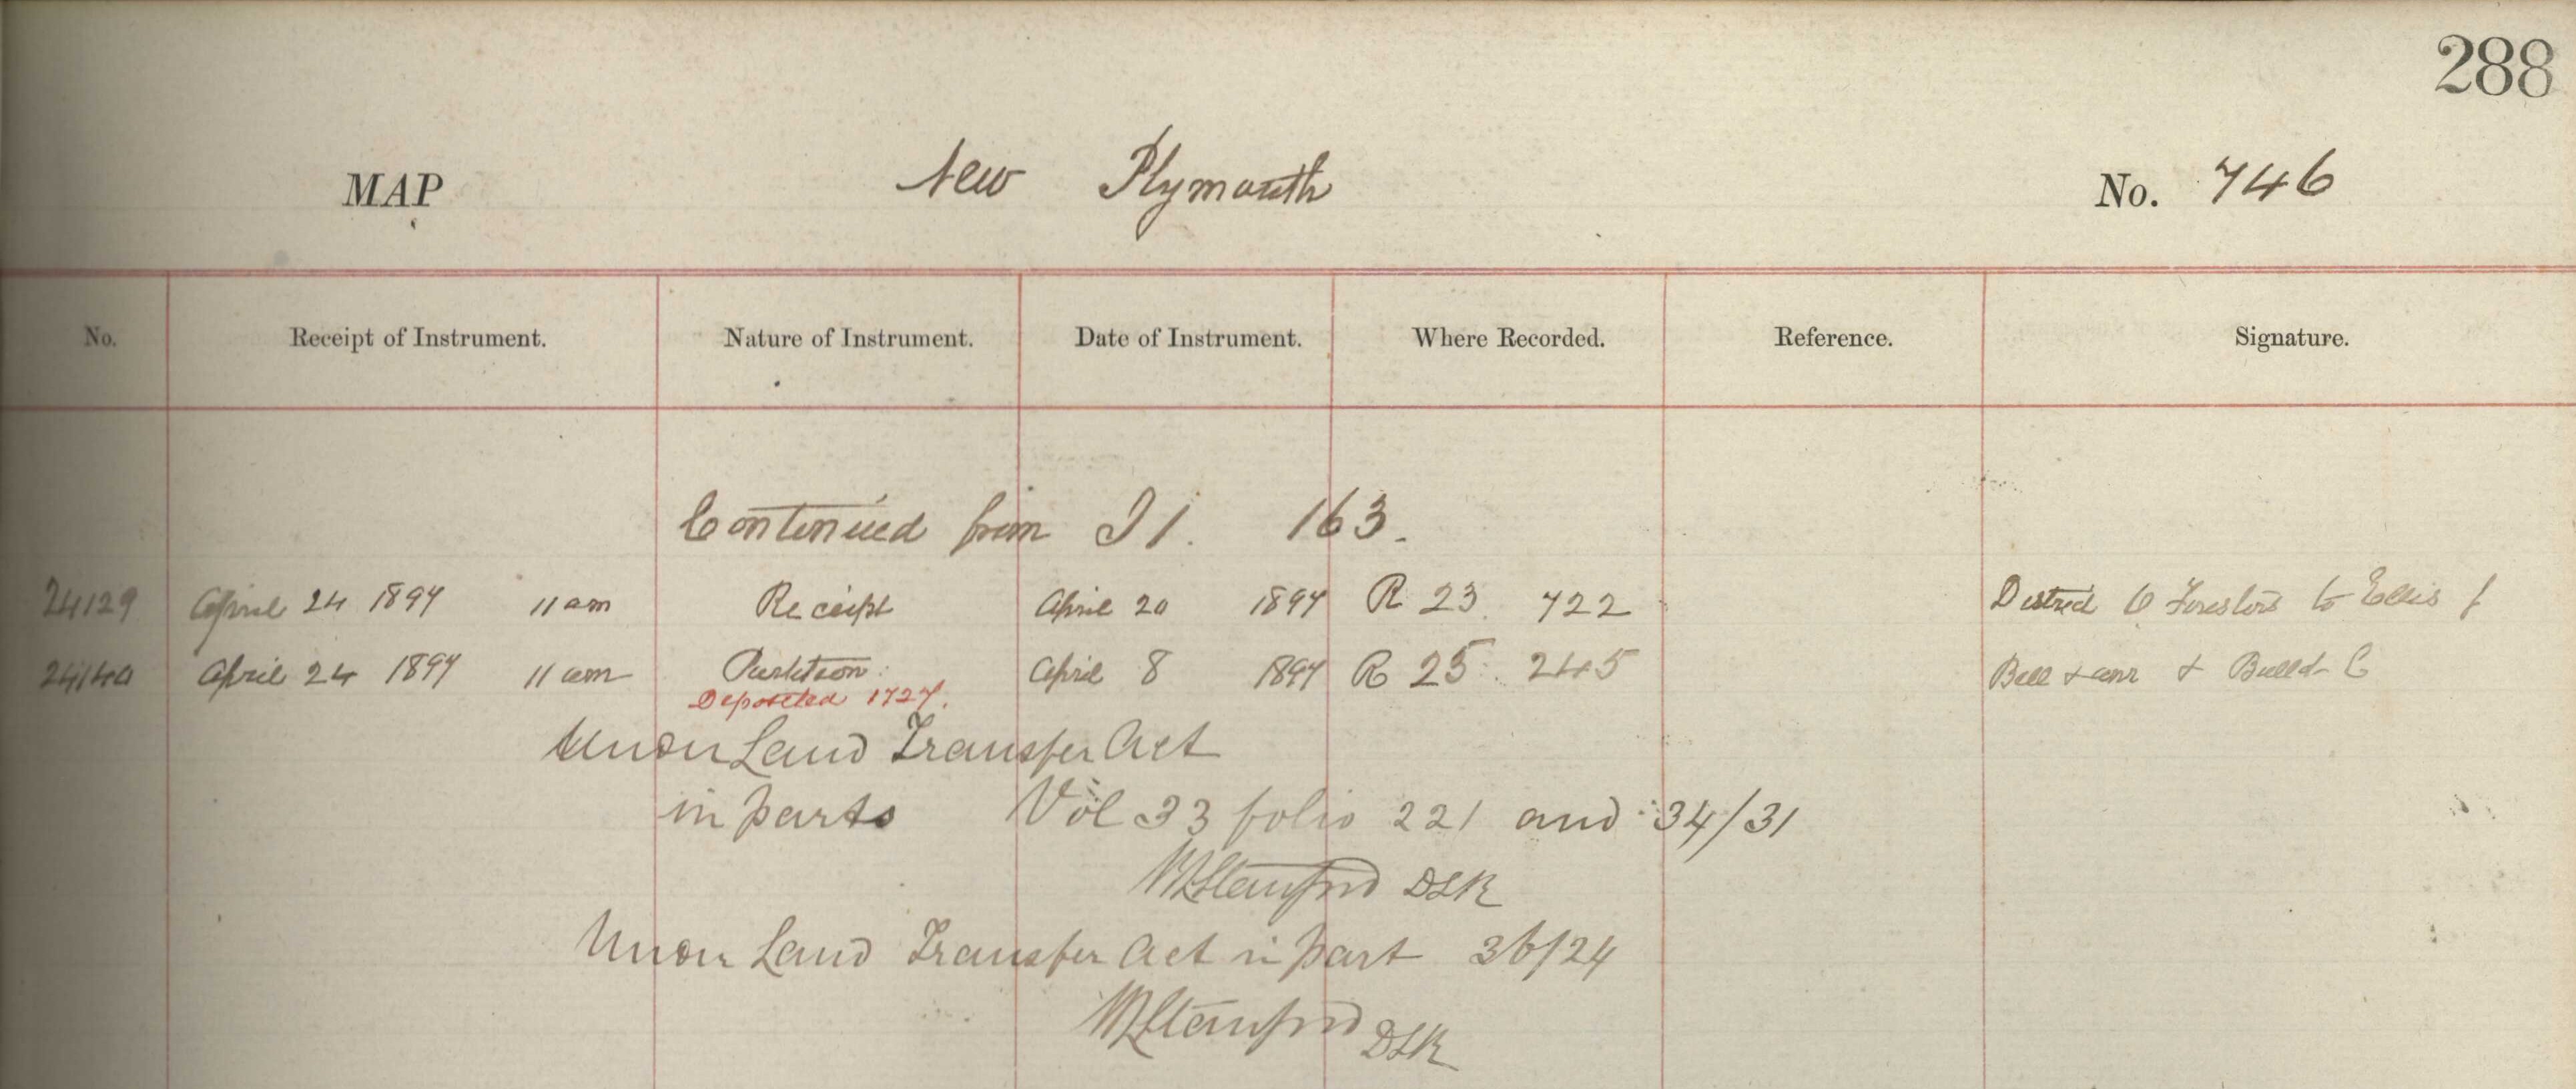 288
MAP New Plymouth No. 746
No. Receipt of Instrument. Nature of Instrument. Date of Instrument. Where Recorded. Reference. Signature.
Continued from I 1. 163.
24129 April 24 1897 11 am Receipt April 20 1897 R 23. 722 District Foresters to Ellis
April 24 1897 11 am Partition April 8 1897 R 25. 245 Bell & anr &
Deposited 1727.
Under Land Transfer Act
in parts Vol 33 folio 221 and 34/31
Stanford DLR
Under Land Transfer Act in part 36/24
Stanford DLR